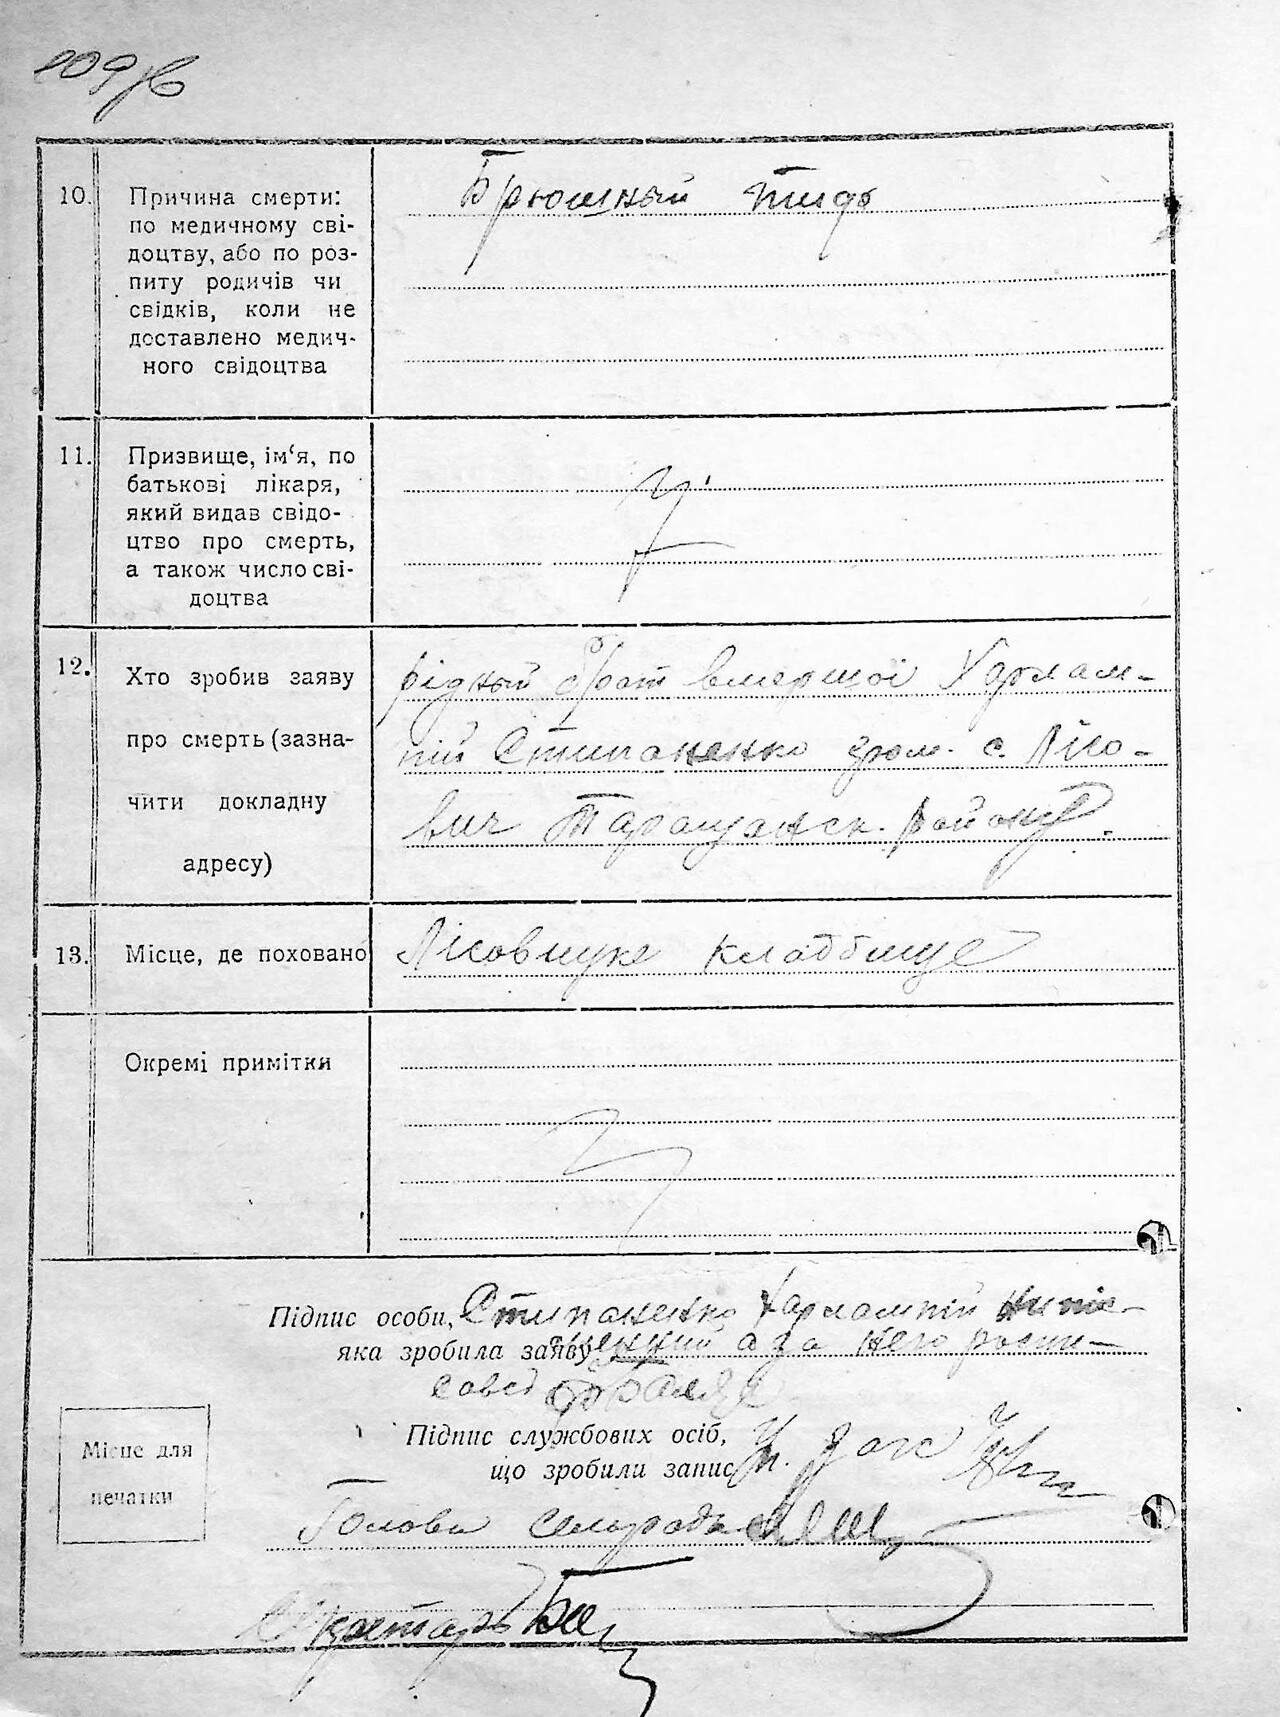 109 зв
10.
Причина смерти:
по медичному сві-
доцтву, або по роз-
питу родичів чи
свідків, коли не
доставлено медич-
ного свідоцтва
Брюшный тиф
11.
Призвище, ім‘я, по
батькові лікаря,
який видав свідо-
цтво про смерть,
а також число сві-
доцтва
12.
Хто зробив заяву
про смерть (зазна-
чити докладну
адресу)
рідный брат вмершої Харлам-
пій Стипаненко гром. с. Лісо-
вич Таращанск. району.
13.
Місце, де поховано
Лісовицке кладбище
Окремі примітки
Підпис особи, Стипаненко Харлампій
яка зробила заяву а за него роспи-
Підпис службових осіб,
що зробили запис
Місце для
печатки
Голова сельради
Секретарь